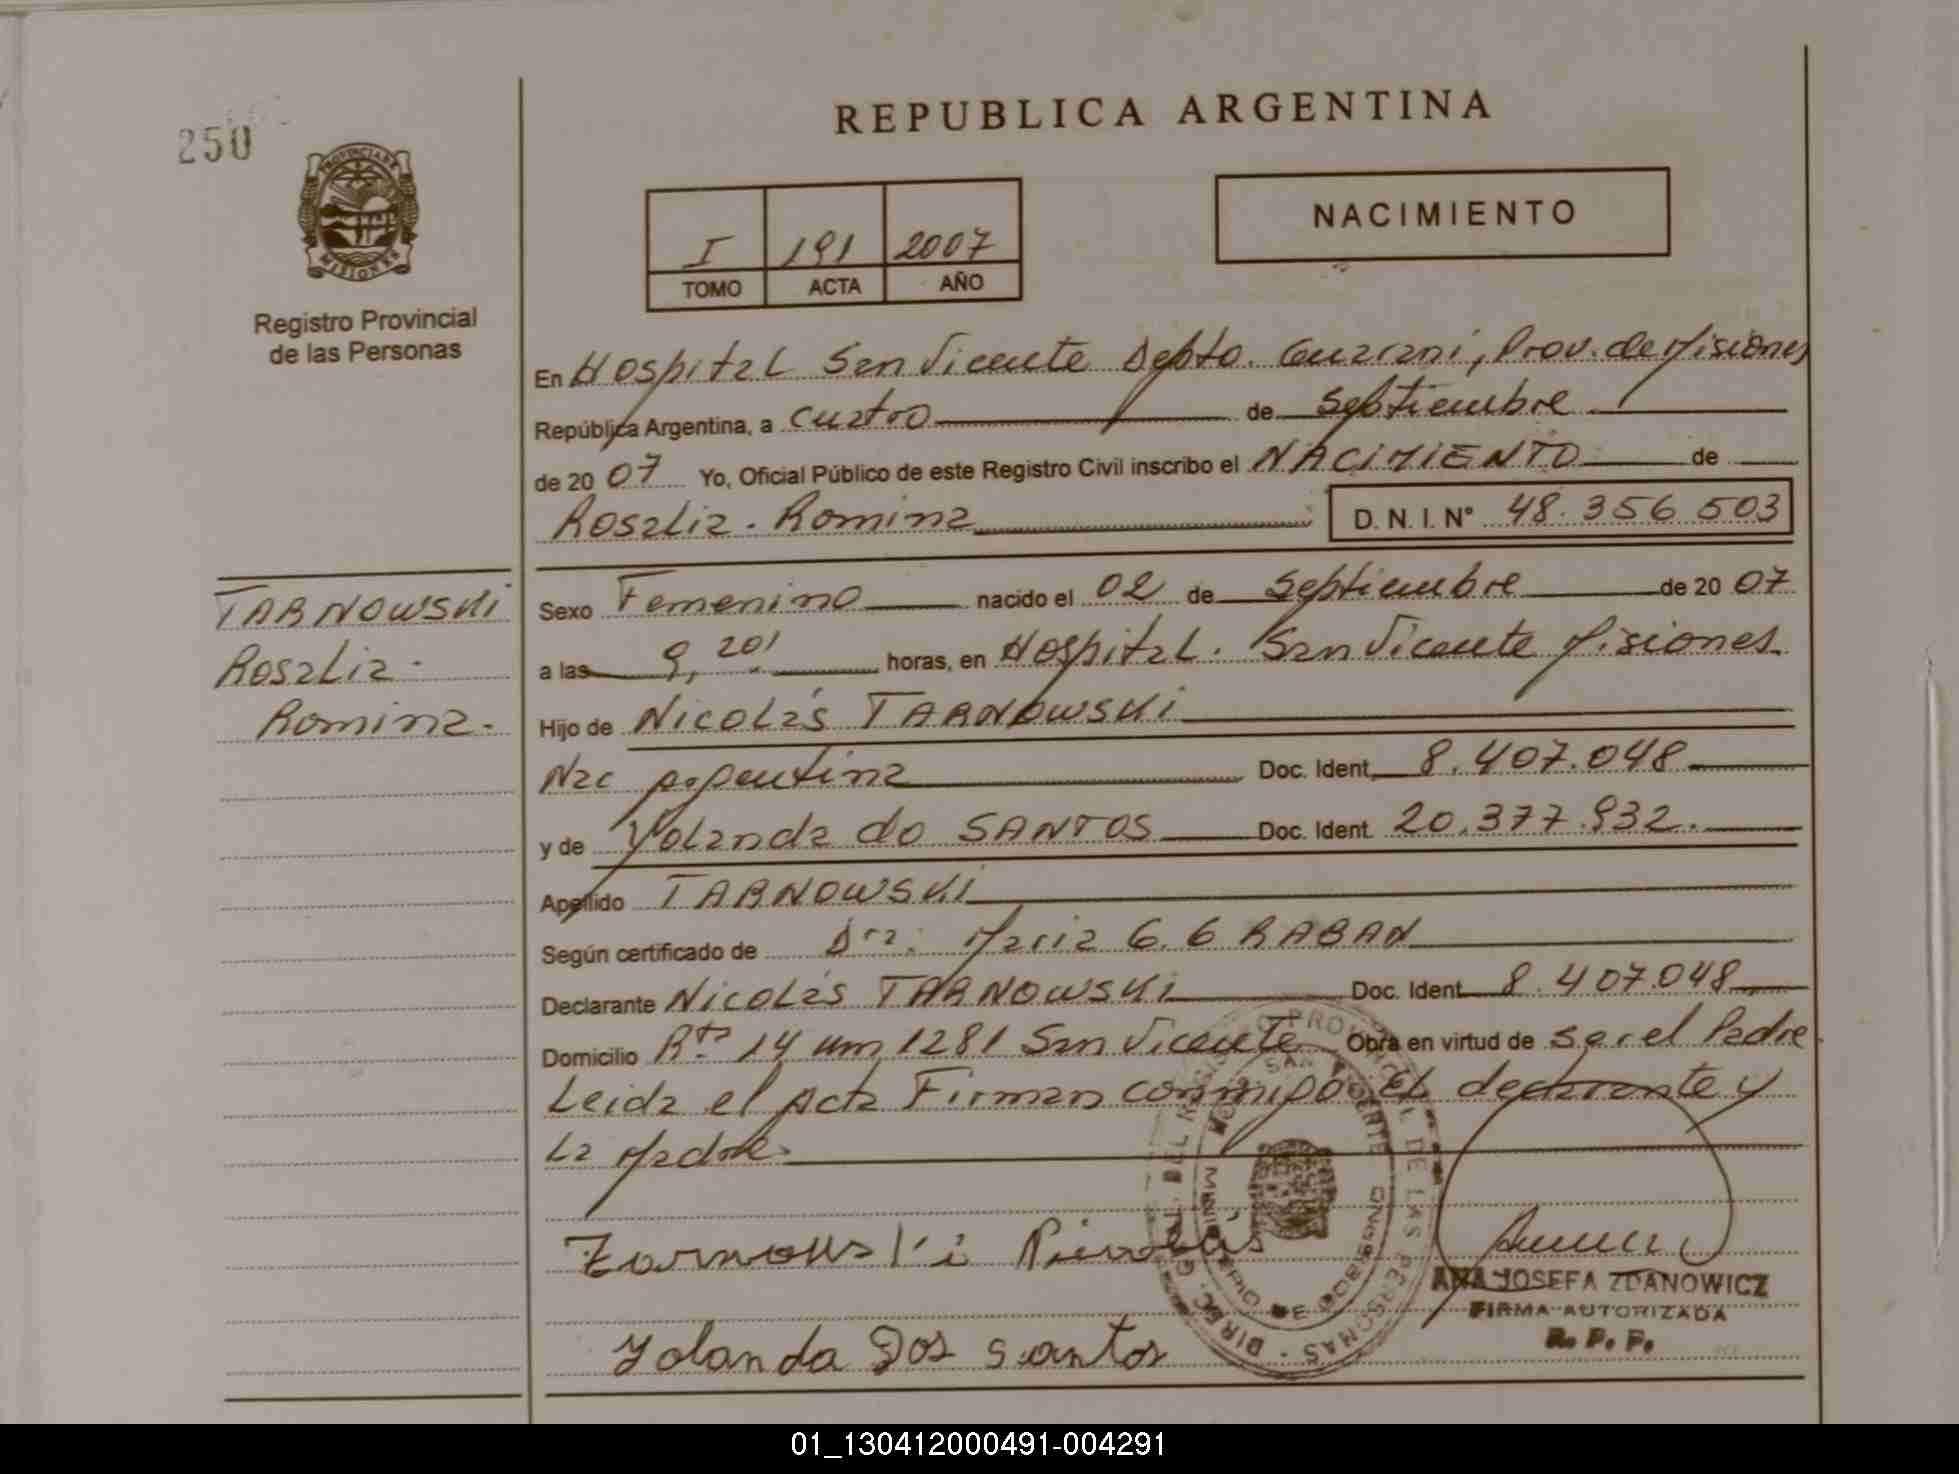 250
REPUBLICA ARGENTINA
PROVINCIA DE
MISIONES
Registro Provincial
de las Personas
I 191 2007
TOMO ACTA AÑO
NACIMIENTO
En Hospital San Vicente Depto. Guarani, Prov. de Misiones
República Argentina, a cuatro de Septiembre
de 20 07 Yo, Oficial Público de este Registro Civil inscribo el NACIMIENTO de
Rosalia. Romina D. N. I. Nº 48.356 503
TARNOWSKI
Rosalia.
Romina.
Sexo Femenino nacido el 02 de Septiembre de 20 07
a las 9, 20' horas, en Hospital. San Vicente Misiones
Hijo de Nicolás TARNOWSKI
Nac Argentina Doc. Ident. 8.407.048
y de Yolanda do SANTOS Doc. Ident. 20.377.932.
Apellido TARNOWSKI
Según certificado de Dra. Maria G. G RABAN
Declarante Nicolás TARNOWSKI Doc. Ident. 8.407.048
Domicilio Rta 14 Km 1281 San Vicente Obra en virtud de ser el Padre
Leida el Acta Firman conmigo el declarante y
La Madre.
Tarnouski Nicolás
Yolanda Dos Santos
ANA JOSEFA ZDANOWICZ
FIRMA AUTORIZADA
R. P. P.
01_130412000491-004291